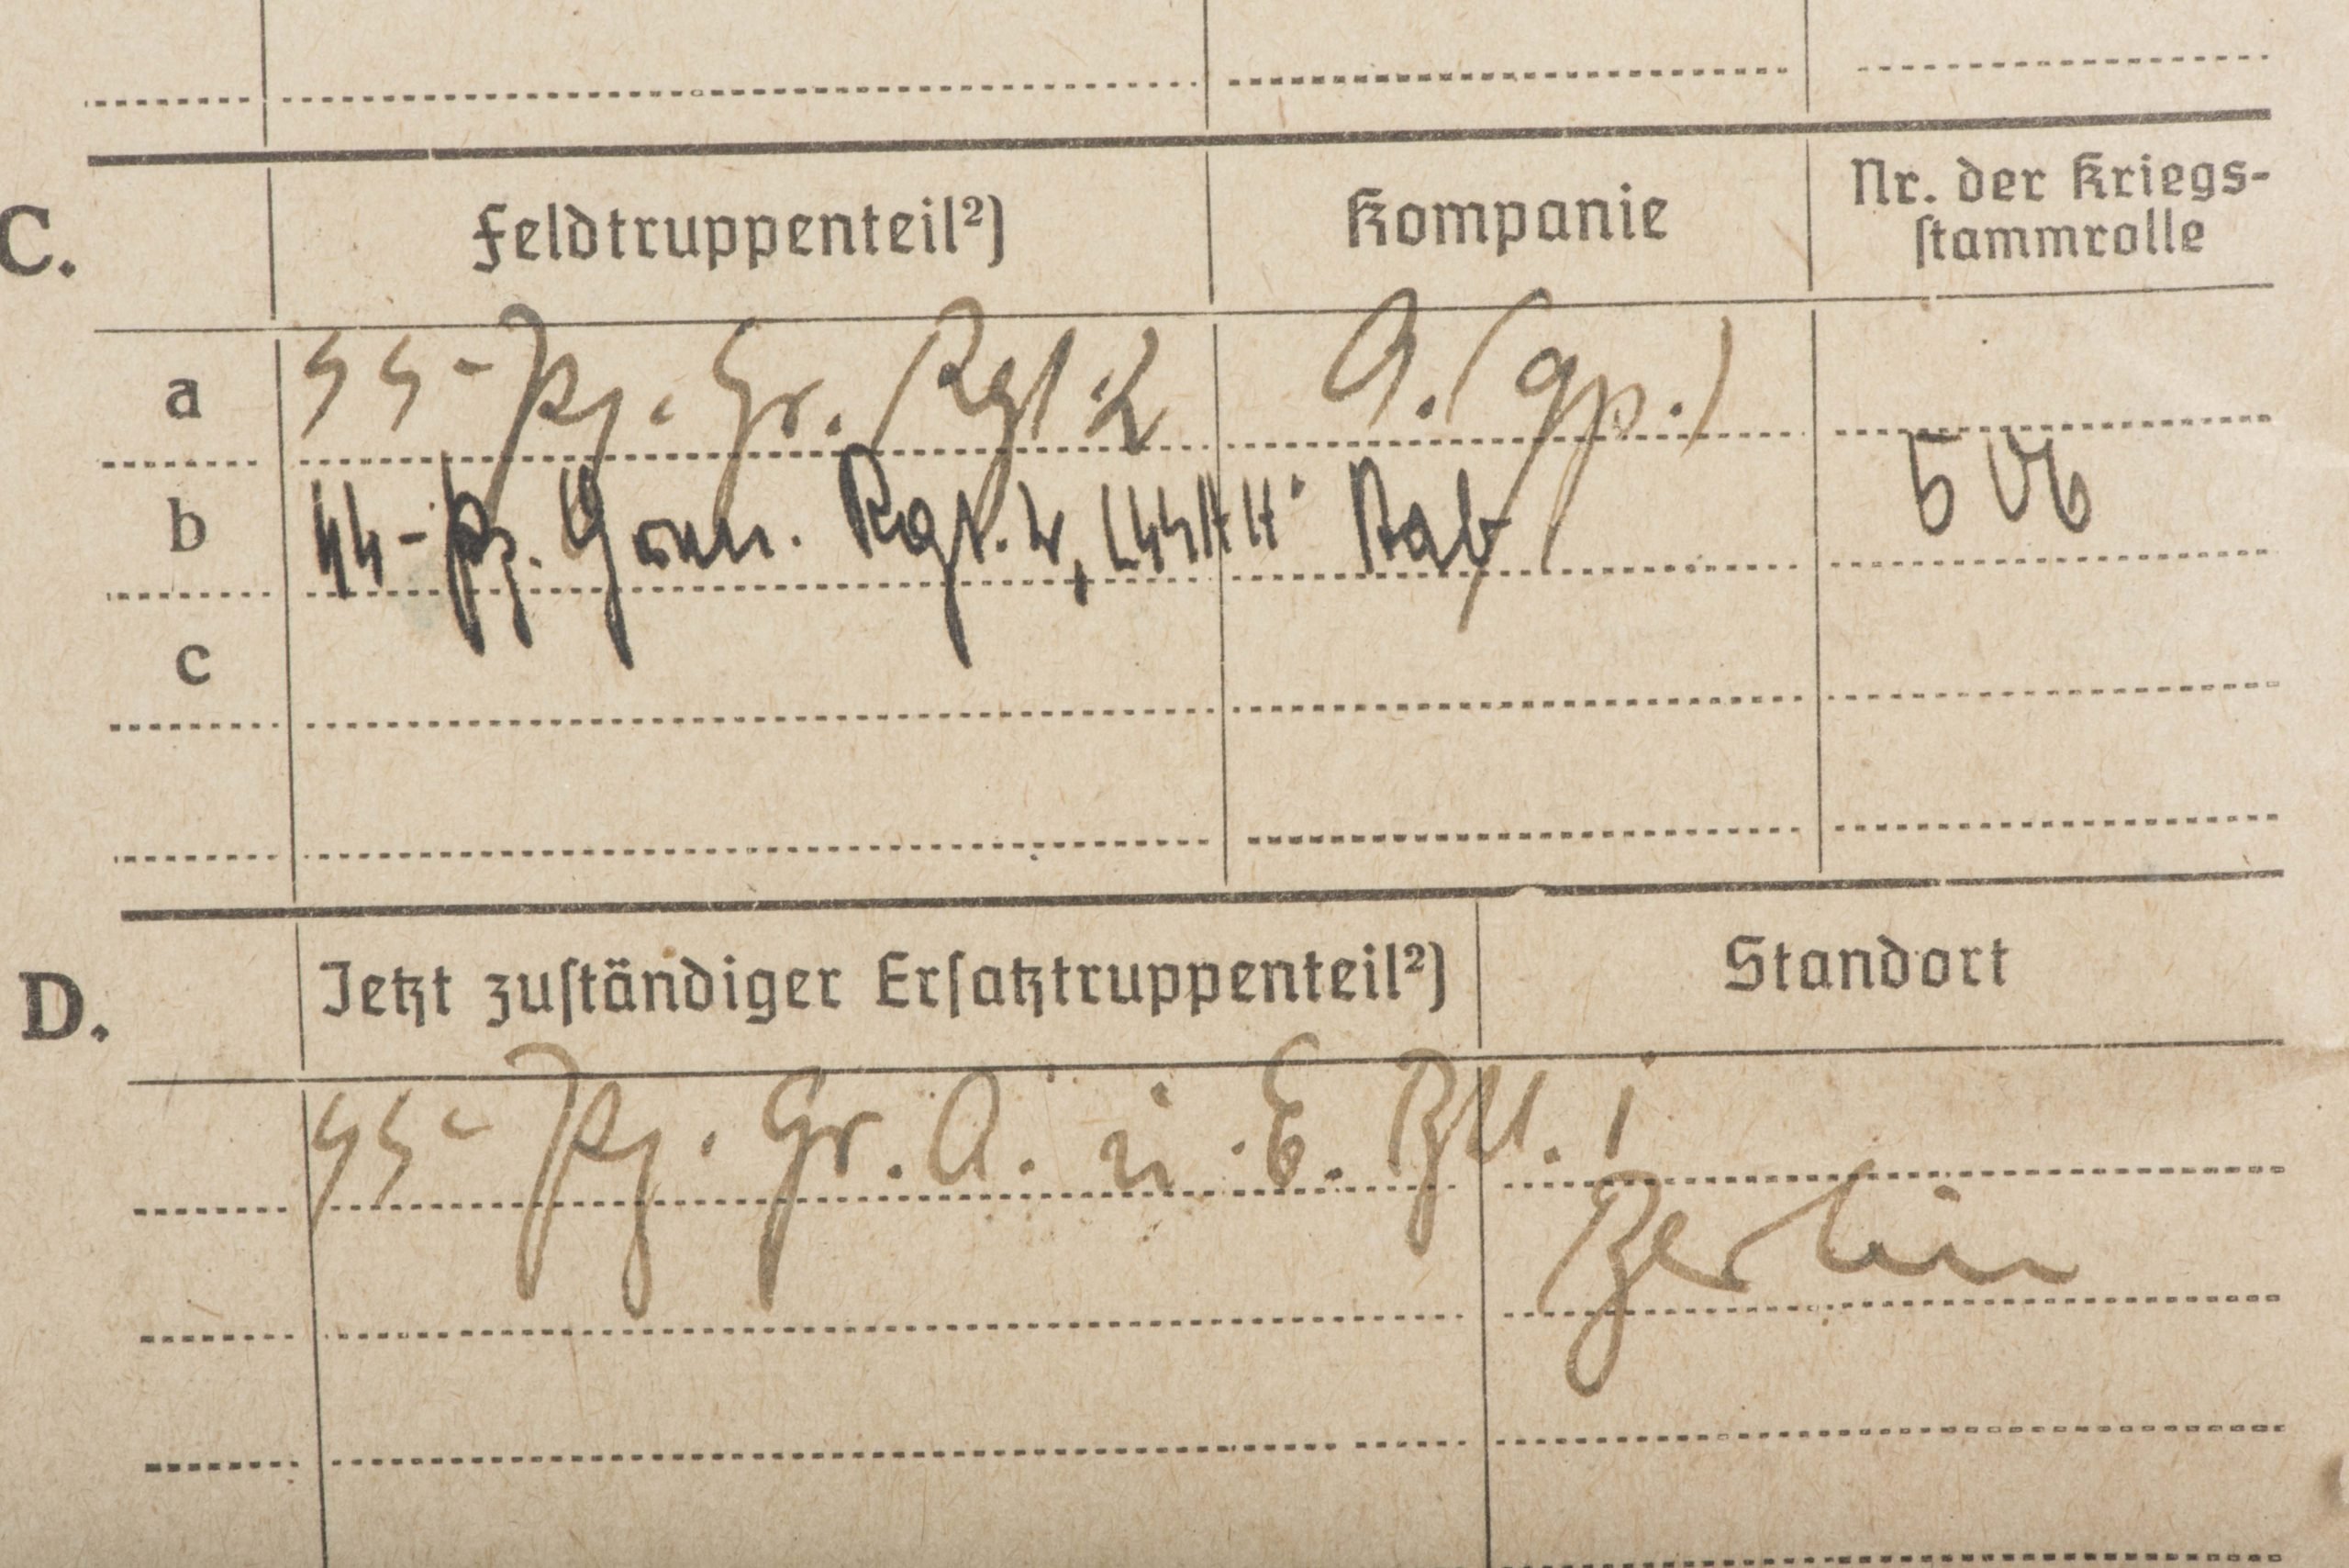 C. Feldtruppenteil²) Kompanie Nr. der Kriegs-
stammrolle
a SS-Pz. Gr. Rgt. 2 9. (gp.)
b SS-Pz. Gren. Rgt. 2, LSSAH. Stab 506
c
D. Jetzt zuständiger Ersatztruppenteil²) Standort
SS-Pz. Gr. A. u. E. Btl. 1
Berlin